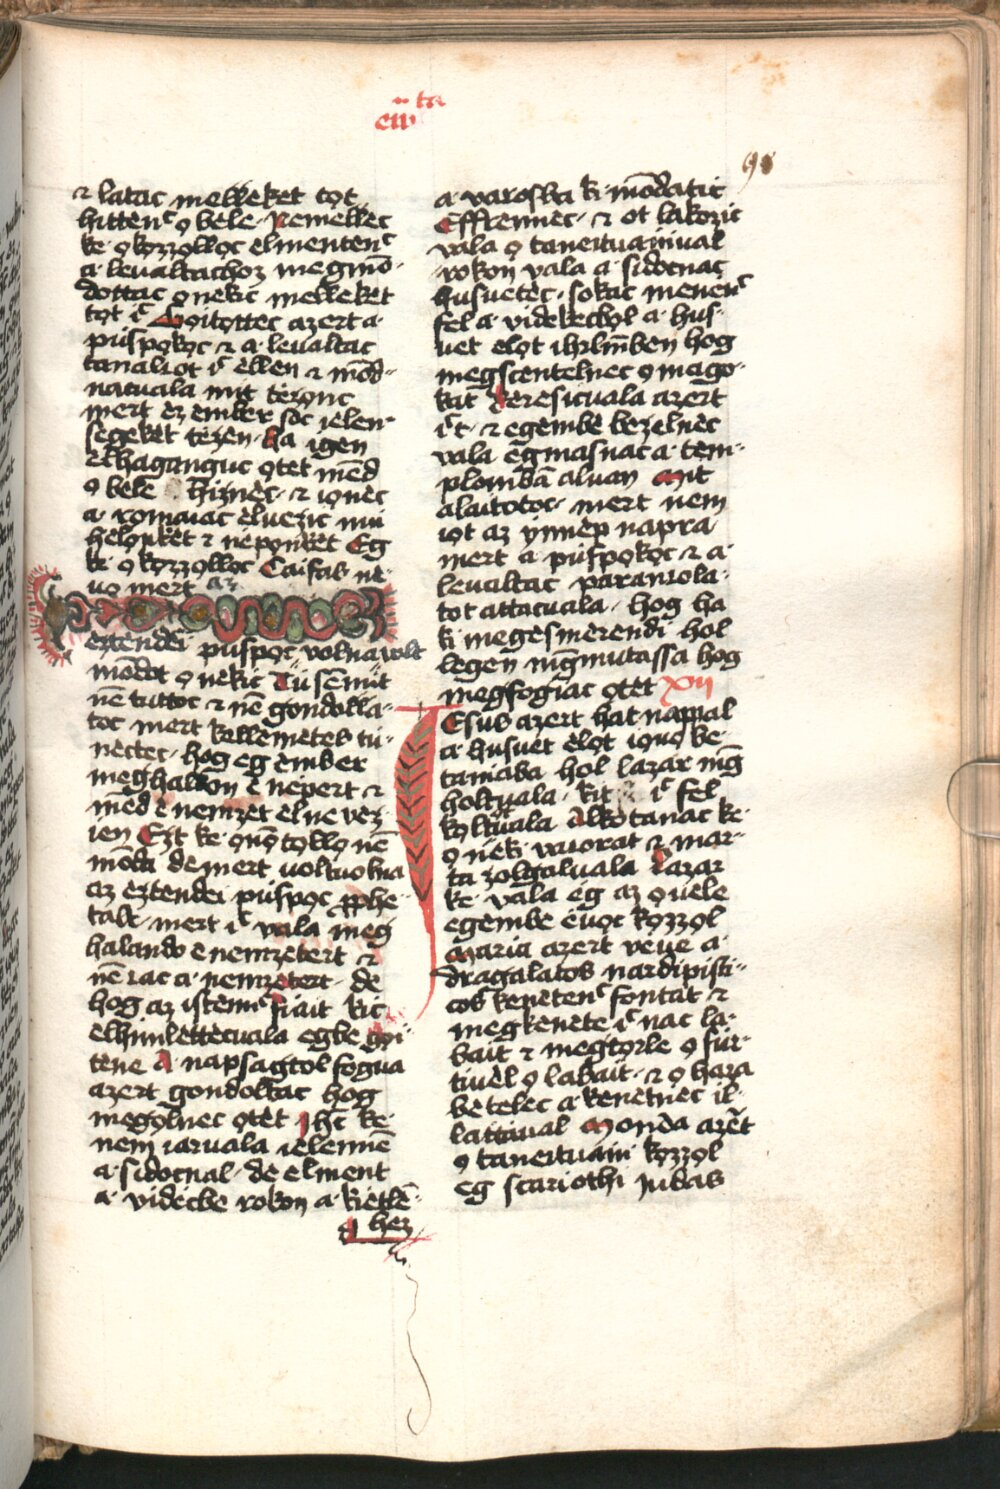 eııȷ ta
98
⁊ latac mellèket tot
hittenc̄ o bèle · Nemellèc
ke· o kozzolloc èlmentenc̄
a· leualtachoz mègmō-
dottac onèkic mellèket
tot ic̄ Goitottèc azert a·
puſpokoc ⁊ a· leualtac
tanaliot ic̄ èllen ⁊ mōd-
natuala mit tèzonc
mert èz ember ſoc ièlen-
ſegèket tèzen · ha igèn
èlhagangguc otèt mēd
o bèle hiznèc · ⁊ ionèc
a· romaiac èluèzic mu
hèlonkèt ⁊ neponkèt Eg
ke· o kozzolloc Caifas nè-
uo mert az
èztendèi puſpoc volna volt
mōdot o nèkic Tu ſèmmit
nē tuttoc ⁊ nē gondolla-
toc mert kellemetes tu-
nèctèc · hog eg ember
mèghalion è nepert ⁊
mēd è nemzet èl ne vèz-
ièn Ezt ke· onō tollo nē
mōda demert uoltuolna
az èztendèi puſpoc ꝓphe-
talt · mert ic̄ vala mèg
halando è nemzetert ⁊
nē čac a· nemzetert · de
hog az iſtenc̄ fiait kic
èlhintèttècuala egbe goi-
tene A napſagtol fogua
azert gondoltac hog
mègolnec otèt Ihc̄ ke·
nem iaruala ièlènnē
a· ſidocnal · de èlment
a· videcbe rokon a· kietlē-
hèz
a· varoſba ki mōdatic
Effremnec · ⁊ ot lakozic
vala o taneituaniual
rokon vala a· ſidocnac
huſuetèc · ſokac menenc̄
fel a· videkecbol a· huſ-
uet èlot ihrl̄mben hog
mègſcentelnec o mago-
kat Kereſicuala azert
ic̄t · ⁊ egembē bezelnèc
vala egmaſnac a· tem-
plombā aluan Mit
alaitotoc · mert nem
iot az innep napra
mert a· puſpokoc ⁊ a·
leualtac parančola-
tot attacuala · hog ha
ki mègeſmerendi hol
legèn mḡmutaſſa hog
mègfogiac otèt XII
Eſus azert hat nappal
a· huſuet èlot ioue be-
taniaba hol lazar mḡ
holtuala · kit ic̄ fel
koltuala Alkotanac ke·
o nèki vaiorat ⁊ mar-
ta zolgaluala Lazar
ke· vala eg az ouèle
egembe èuoc kozzol
Maria azert veue a·
dragalatos nardipiſti-
cos kenètenc̄ fontat ⁊
mègkenete ic̄ nac la-
bait ⁊ mègtorle o fur-
tiuèl o labait · ⁊ o haza
bètelec a· kenètnec il-
lattaual Monda azēt
o taneituani kozzol
eg ſcariothi Iudas